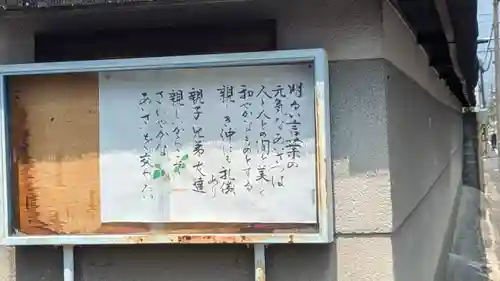 明るい言葉の
元気なあいさつは
人と人との間を美しく
和やかなものとする
親しき仲にも礼儀
あり
親子兄弟友達
親しいからこそ
さわやかな
あいさつを交わしたい